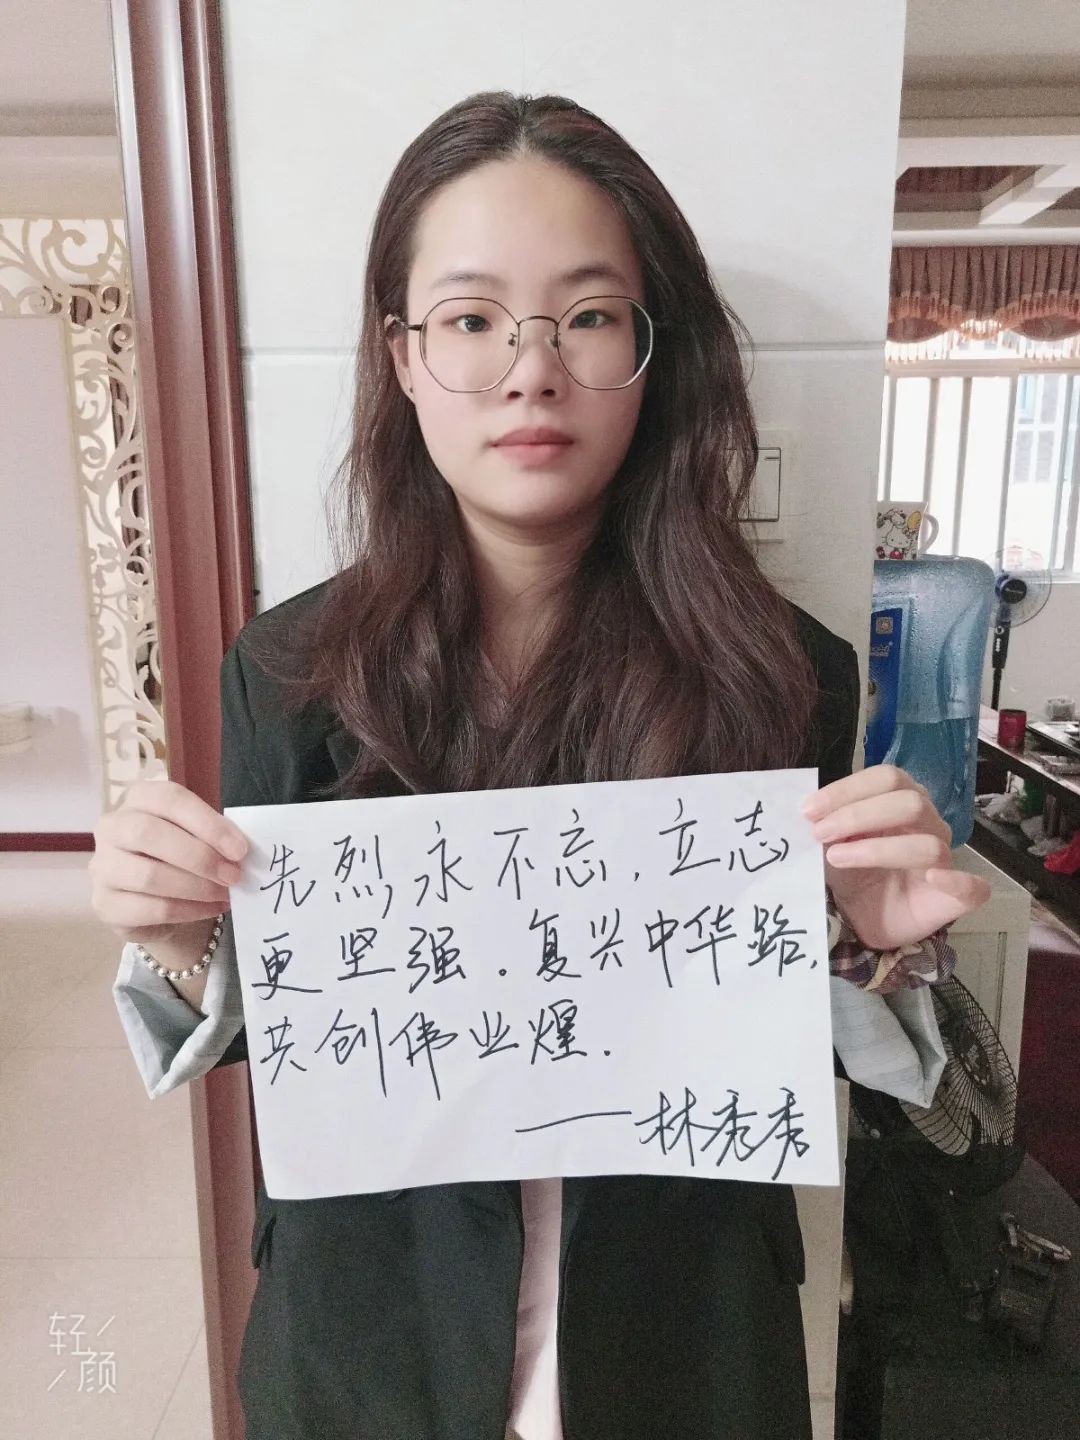 先烈永不忘，立志
更坚强。复兴中华路，
共创伟业煌.
——林秀秀
轻颜